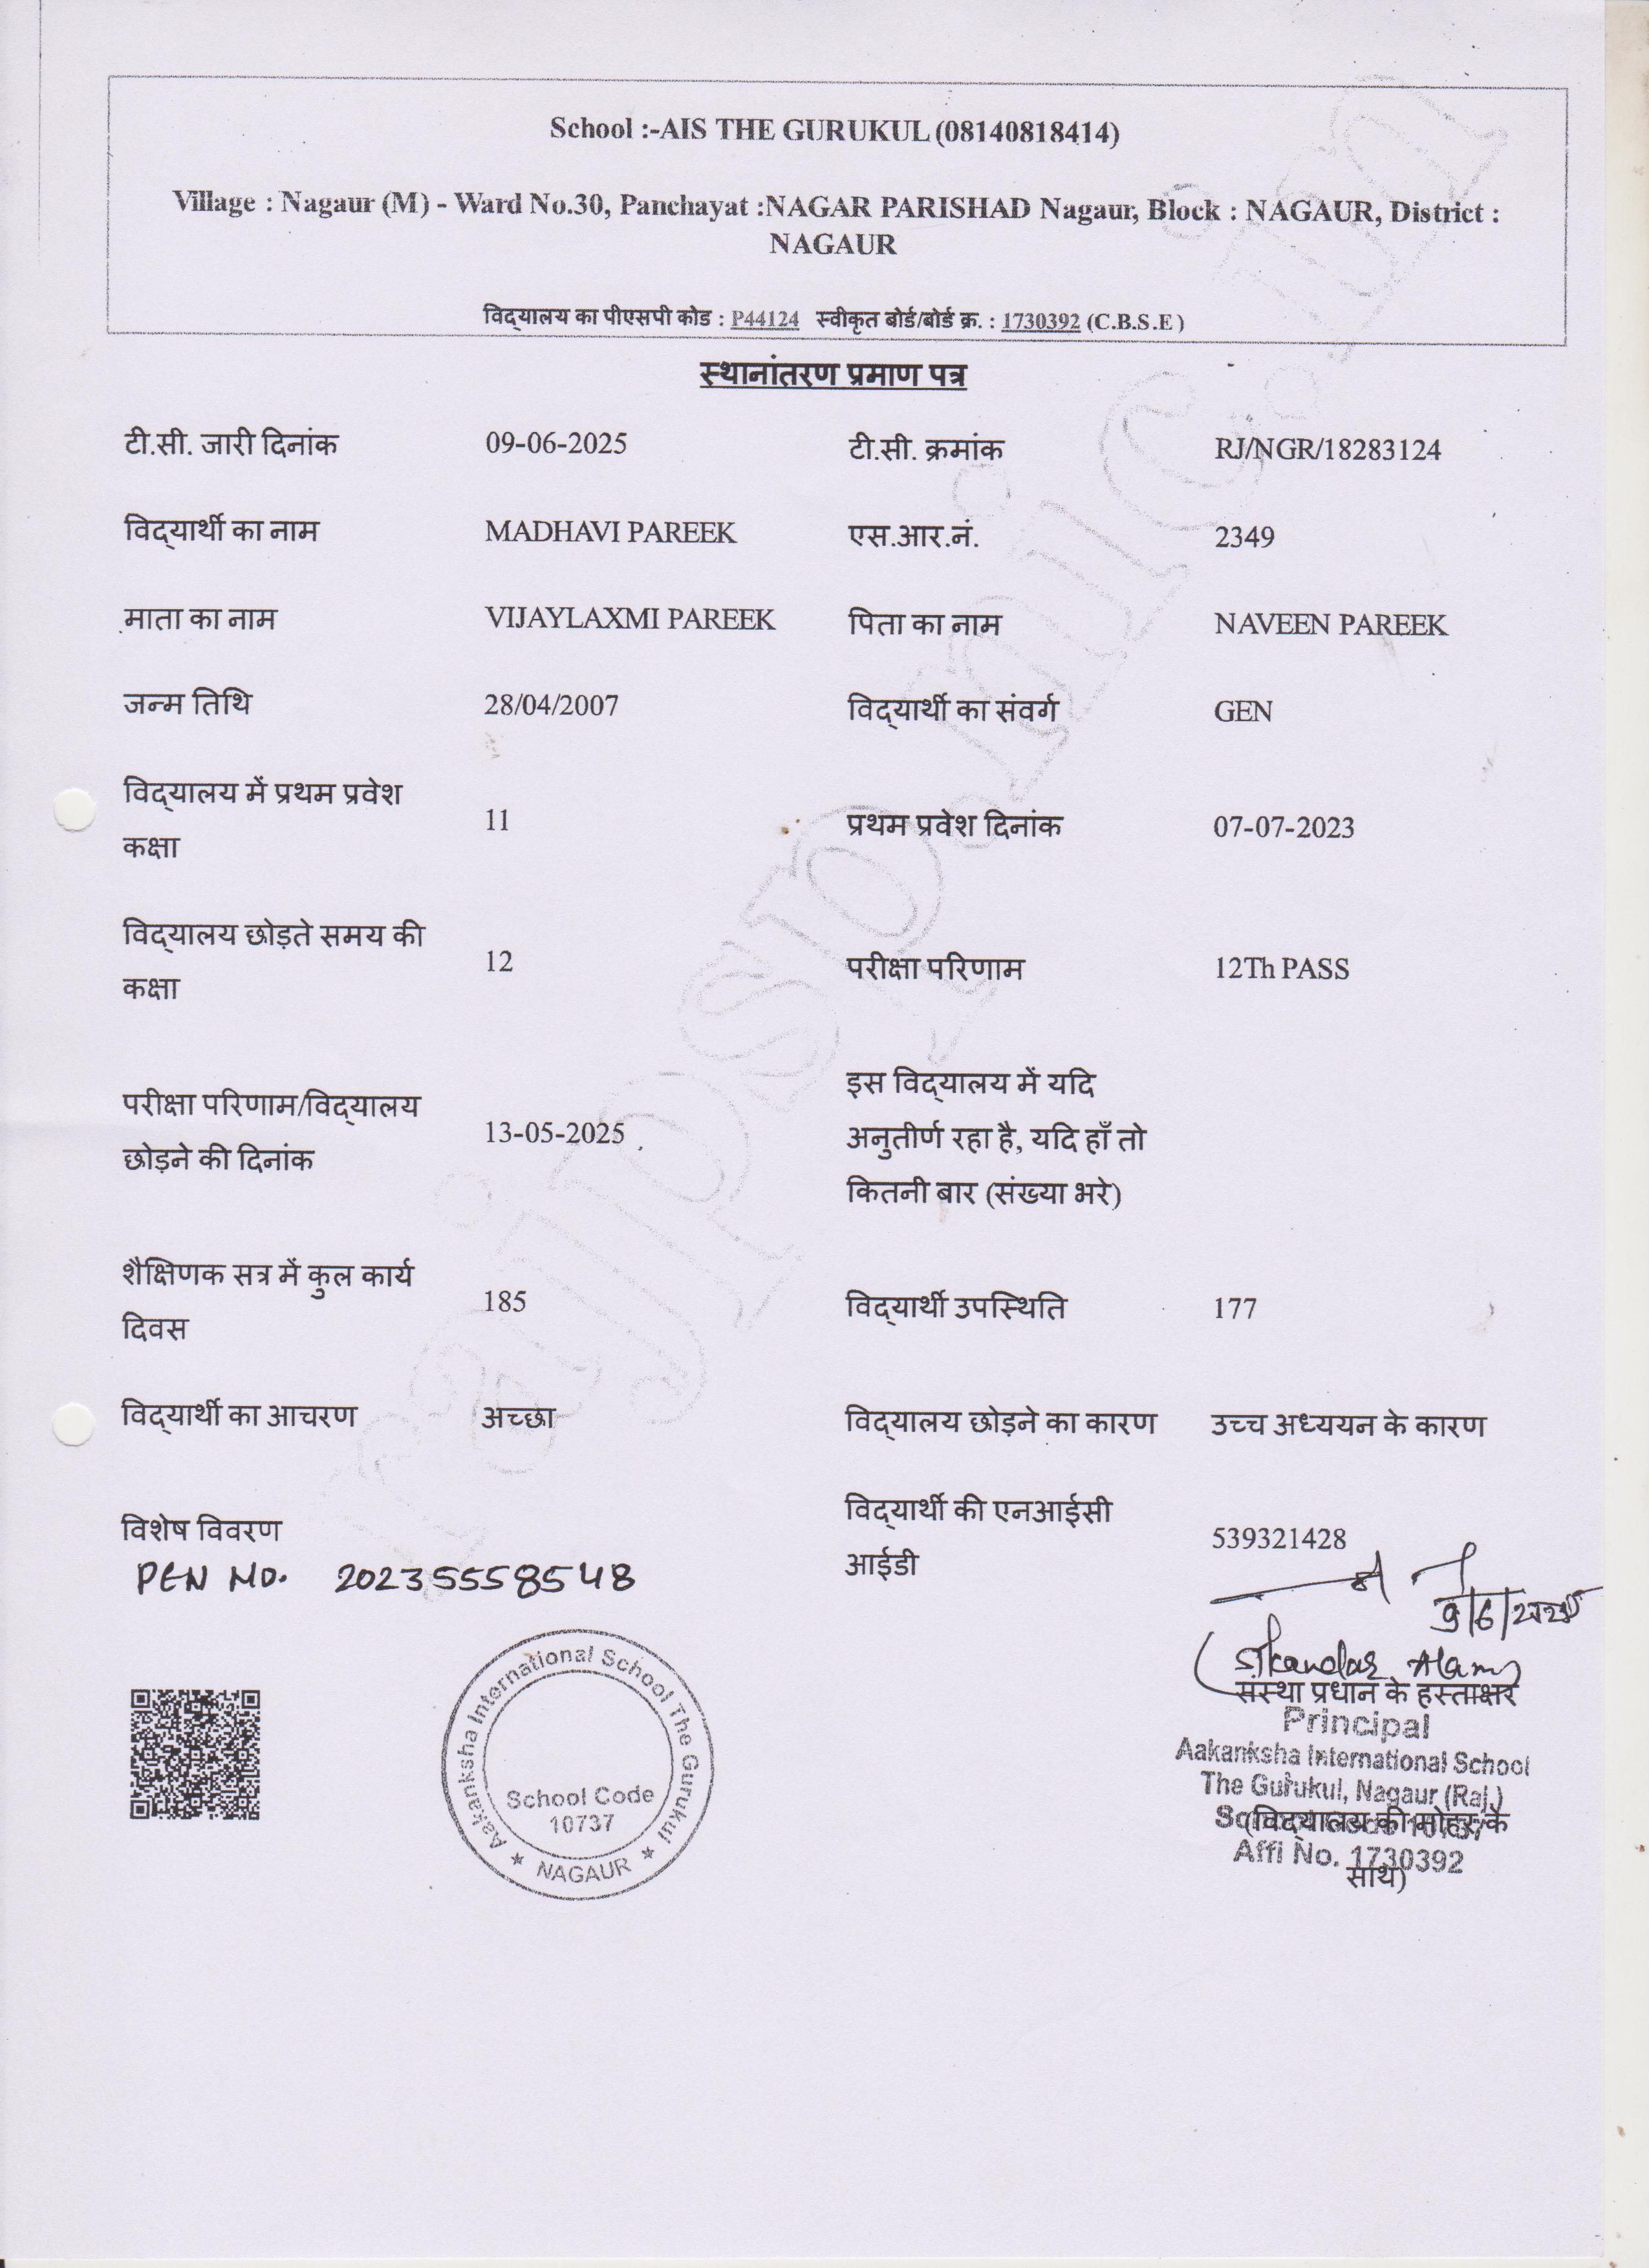 School :-AIS THE GURUKUL (08140818414)
Village : Nagaur (M) - Ward No.30, Panchayat :NAGAR PARISHAD Nagaur, Block : NAGAUR, District :
NAGAUR
विद्यालय का पीएसपी कोड : P44124 स्वीकृत बोर्ड/बोर्ड क्र. : 1730392 (C.B.S.E )
स्थानांतरण प्रमाण पत्र
टी.सी. जारी दिनांक 09-06-2025 टी.सी. क्रमांक RJ/NGR/18283124
विद्यार्थी का नाम MADHAVI PAREEK एस.आर.नं. 2349
माता का नाम VIJAYLAXMI PAREEK पिता का नाम NAVEEN PAREEK
जन्म तिथि 28/04/2007 विद्यार्थी का संवर्ग GEN
विद्यालय में प्रथम प्रवेश
कक्षा
11
प्रथम प्रवेश दिनांक 07-07-2023
विद्यालय छोड़ते समय की
कक्षा
12
परीक्षा परिणाम 12Th PASS
परीक्षा परिणाम/विद्यालय
छोड़ने की दिनांक
13-05-2025
इस विद्यालय में यदि
अनुतीर्ण रहा है, यदि हाँ तो
कितनी बार (संख्या भरे)
शैक्षिणक सत्र में कुल कार्य
दिवस
185
विद्यार्थी उपस्थिति 177
विद्यार्थी का आचरण अच्छा विद्यालय छोड़ने का कारण उच्च अध्ययन के कारण
विशेष विवरण
PEN NO. 20235558548
विद्यार्थी की एनआईसी
आईडी
539321428
9/6/2025
(Sikandar Alam)
संस्था प्रधान के हस्ताक्षर
Principal
Aakanksha International School
The Gurukul, Nagaur (Raj.)
(विद्यालय की मोहर के
Affi No. 1730392
साथ)
Aakanksha International School The Gurukul
School Code
10737
★ NAGAUR ★
rajpsp.nic.in